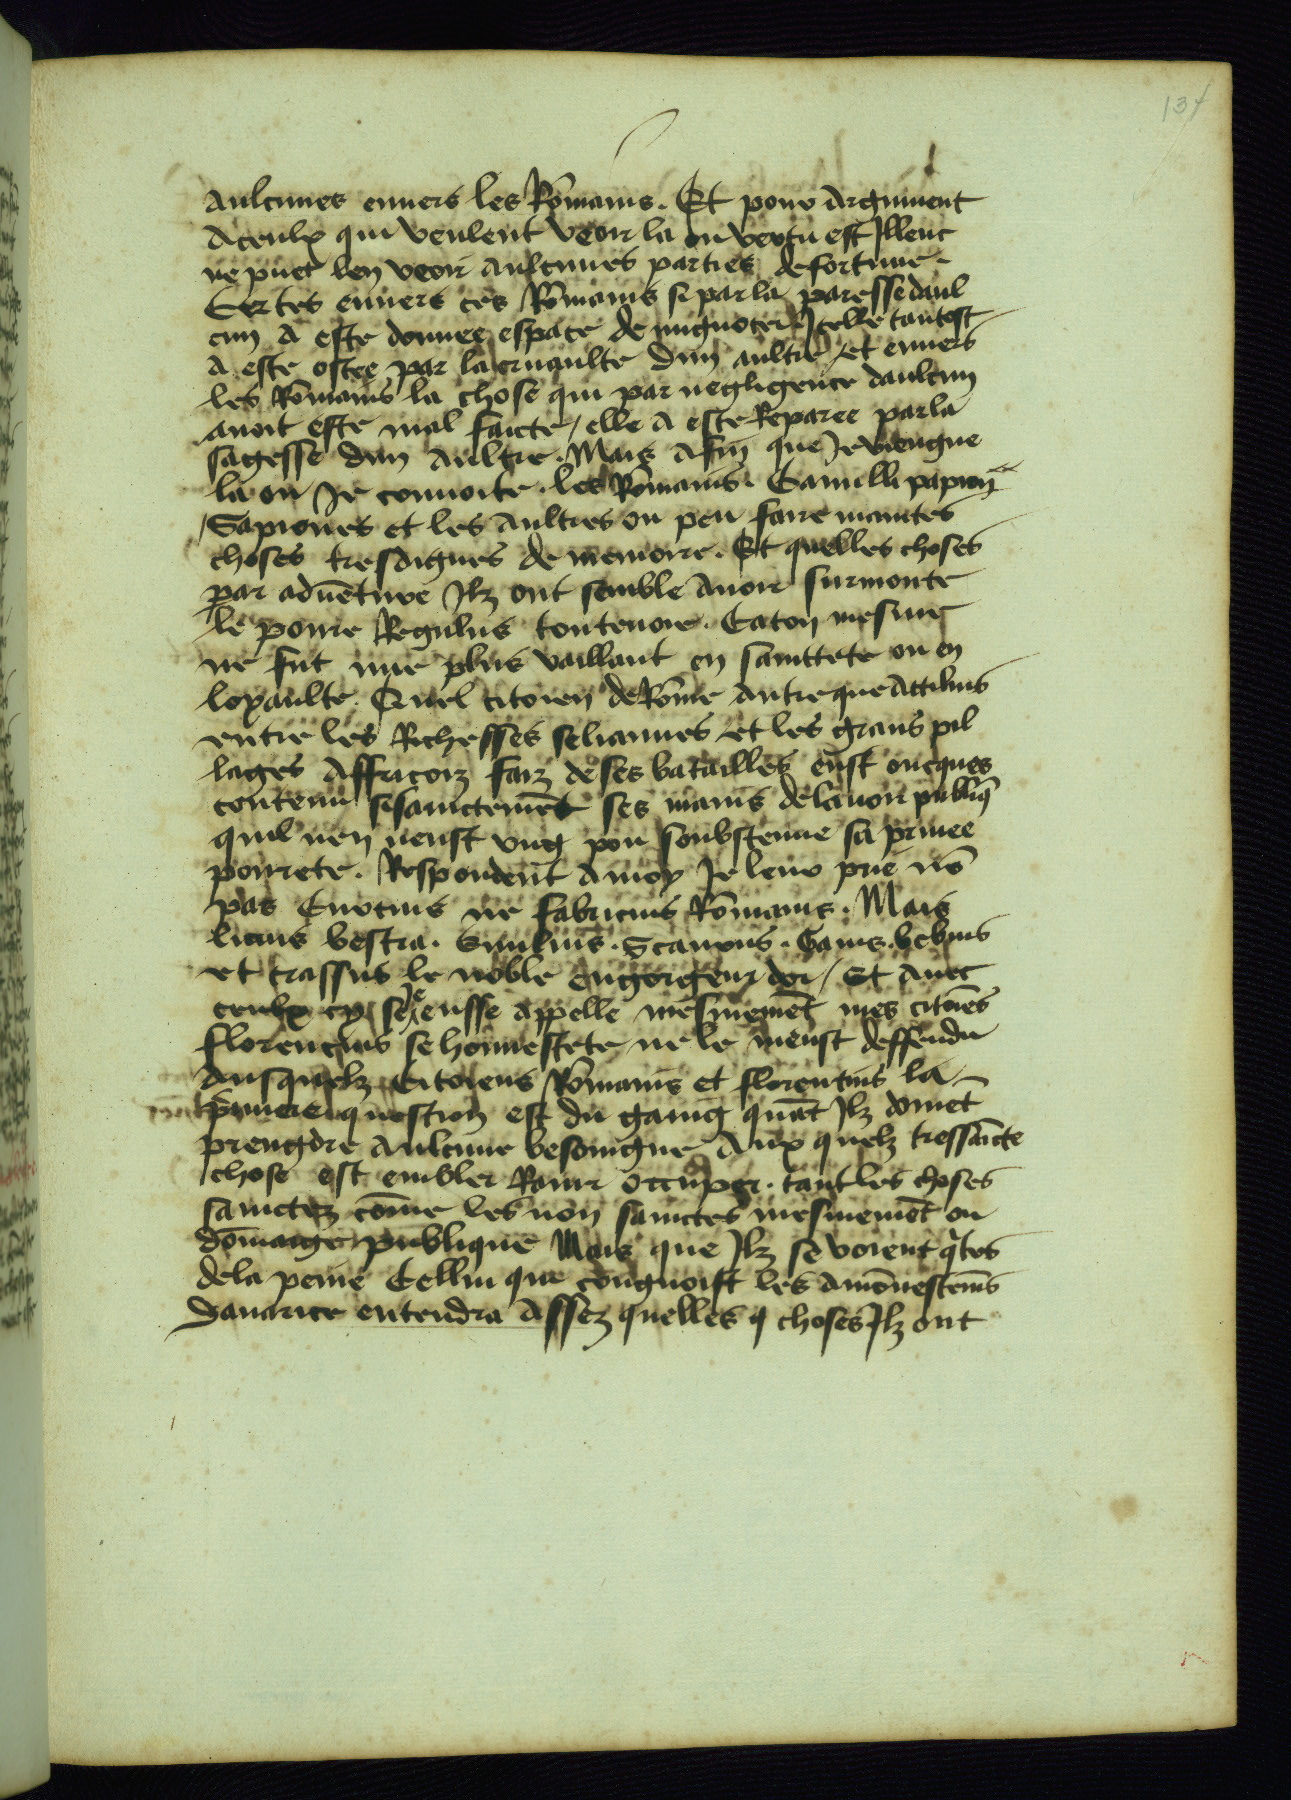 137
Aulcunes enuers les Romains. Et pour Argument
Aceulx qui veulent veoir la ou vertu est Illenc
ne puet len veoir aulcunes parties de fortune
Certes enuers ces Romains se par la paresse daul
cun A este donnee espace de Icelle tantost
A este ostee par la cruaulte dun aultre / et enuers
les Romains la chose qui par negligence daulcun
auoit este mal faicte / elle A este Reparee par la
sagesse dun aultre. Mais Afin que Je viengne
la ou Je conuoite. les Romains. Camilli papion
Sapiones et les Aultres on peu faire maintes
choses tresdignes de memoire. Et quelles choses
par aduēture Ilz ont semble Auoir surmonte
le poure Regulus toutenoie. Caton mesme
ne fut mie plus vaillant en sainttete ou en
loyaulte. Quel citoien de Rōme Autre que Attilius
entre les Richesses seliennes et les grans pil
lages Affricoiz faiz de ses batailles eust oncques
contenu si sainctemēt ses mains de lauoir publiq̄
quil nen neust vng pou soubstenue sa priuee
pourete. Respondent Amoy Je leur prie nō
pas Curcius ne fabricius Romains. Mais
licius bestia. Emilius. Scaurus. Gaius. bebius
et crassus le noble engorgeur dor / Et Auec
ceulx cy se Je eusse appelle mesmemēt mes citoiēs
florencins se honnestete ne le meust deffendu
Ausquelz Citoiens Romains et florentins la
premiere question est du gaing quāt Ilz doiuēt
prengdre Aulcune besoingne Aux quelz tressaīcte
chose est embler Rauir occupper. tant les choses
sainctez cōme les non sainctes mesmemēt ou
dōmaige publique Mais que Ilz se voient q̄tes
de la peine Celluy que congnoist les Amōnestemēs
Dauarice entendra Assez quelles q choses Ilz ont